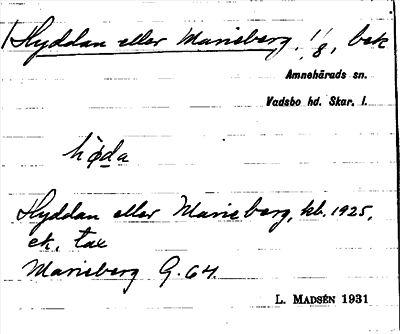 Hyddan eller Marieberg. 1/8, bek
Amnehärads sn.
Vadsbo hd. Skar. l.
hȯda
Hyddan eller Marieberg, kb. 1925,
ek. tax
Marieberg G. 64.
L. MADSÉN 1931